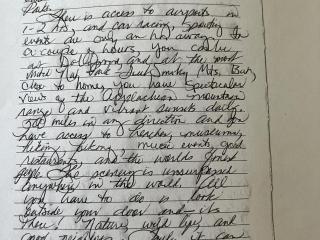 There is access to airports in
1-2 hrs and car racing, sporting
events are only an hrs away. In
a couple of hours, you can be
at Dollywood and at the most
visited Nat, Park Great Smoky Mts. But,
close to home, you have spectacular
views of the Appalachian mountain
range and vibrant sunsets daily.
miles in any direction and you
have access to beaches, museums,
hiking, biking, music events, good
restaurants, and the worlds finest
people. The scenery is unsurpassed
anywhere in the world. All
you have to do is look
outside your door and its
there! Nature, wild life, and
good neighbors. it can